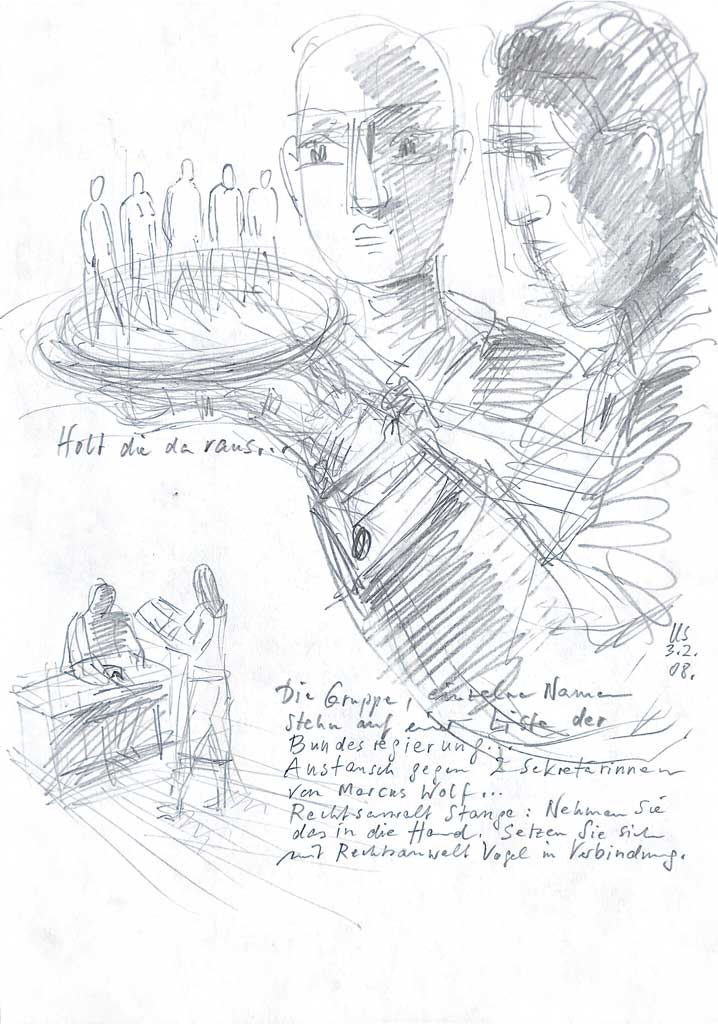 Holt die da raus...
Us
3.2.
08.
Die Gruppe, einzelne Namen
stehn auf einer Liste der
Bundesregierung...
Austausch gegen 2 Sekretärinnen
von Marcus Wolf...
Rechtsanwalt Stange: Nehmen Sie
das in die Hand. Setzen Sie sich
mit Rechtsanwalt Vogel in Verbindung.